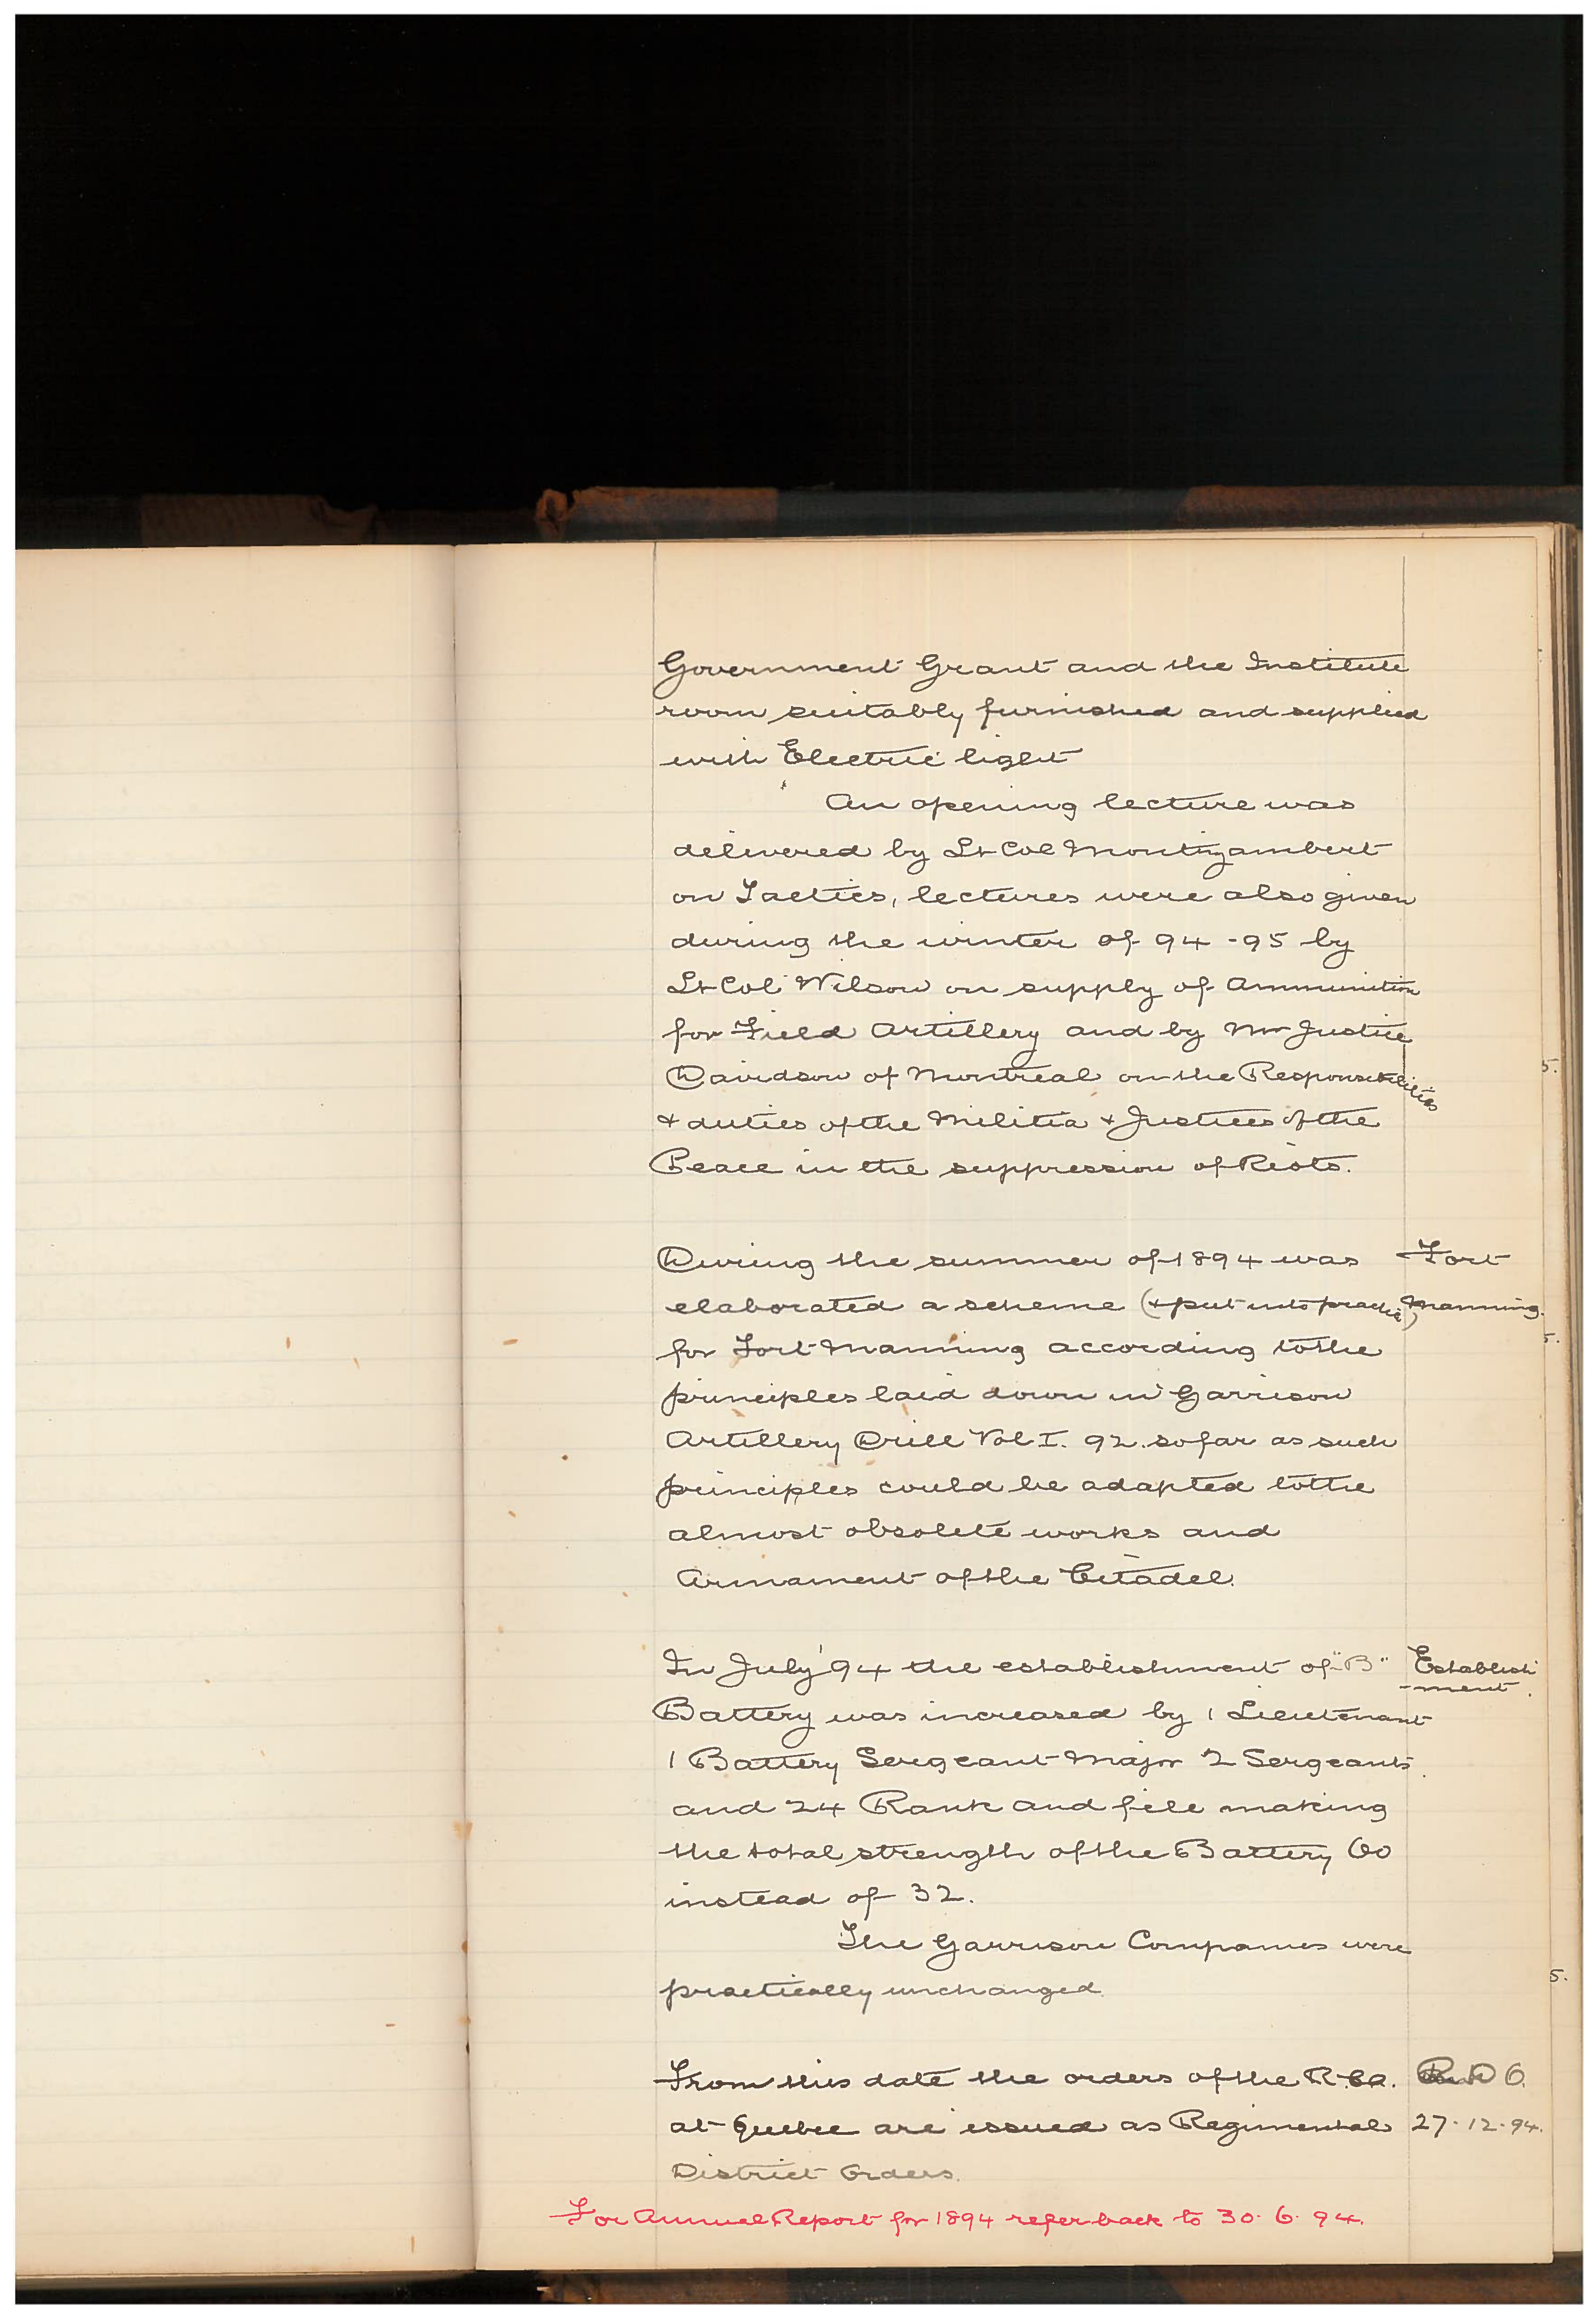 Government Grant and the Institute
room suitably furnished and supplied
with Electric light
An opening lecture was
delivered by Lt Col Montizambert
on Tactics, lectures were also given
during the winter of 94-95 by
Lt Col Wilson on supply of Ammunition
for Field Artillery and by Mr Justice
Davidson of Montreal on the Responsibilities
& duties of the Militia & Justices of the
Peace in the suppression of Riots.
During the summer of 1894 was Fort
elaborated a scheme (& put into practice) Manning.
for Fort Manning according to the
principles laid down in Garrison
Artillery Drill Vol I. 92. so far as such
principles could be adapted to the
almost obsolete works and
Armament of the Citadel.
In July '94 the establishment of "B" Establish
Battery was increased by 1 Lieutenant -ment.
1 Battery Sergeant Major 2 Sergeants
and 24 Rank and file making
the total strength of the Battery 60
instead of 32.
The Garrison Companies were
practically unchanged.
From this date the orders of the R.C.A. R D O.
at Quebec are issued as Regimental 27-12-94.
District Orders.
For Annual Report for 1894 refer back to 30.6.94.